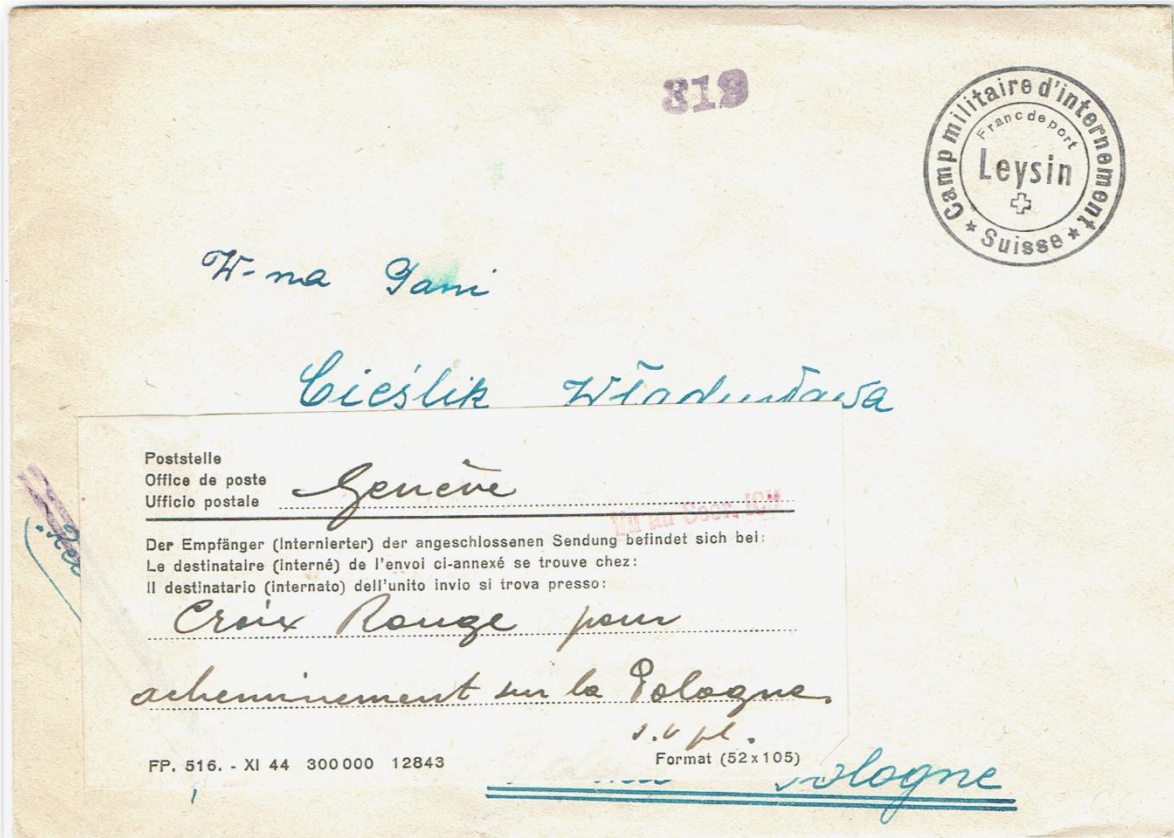 319
Camp militaire d'internement
Franc de port
Leysin
Suisse
W-na Pani
Cieślik Władysława
Poststelle
Office de poste
Ufficio postale
Genève
Der Empfänger (Internierter) der angeschlossenen Sendung befindet sich bei:
Le destinataire (interné) de l'envoi ci-annexé se trouve chez:
Il destinatario (internato) dell'unito invio si trova presso:
Croix Rouge pour
acheminement sur la Pologne
s.v.pl.
FP. 516. - XI 44 300 000 12843
Format (52x105)
Pologne